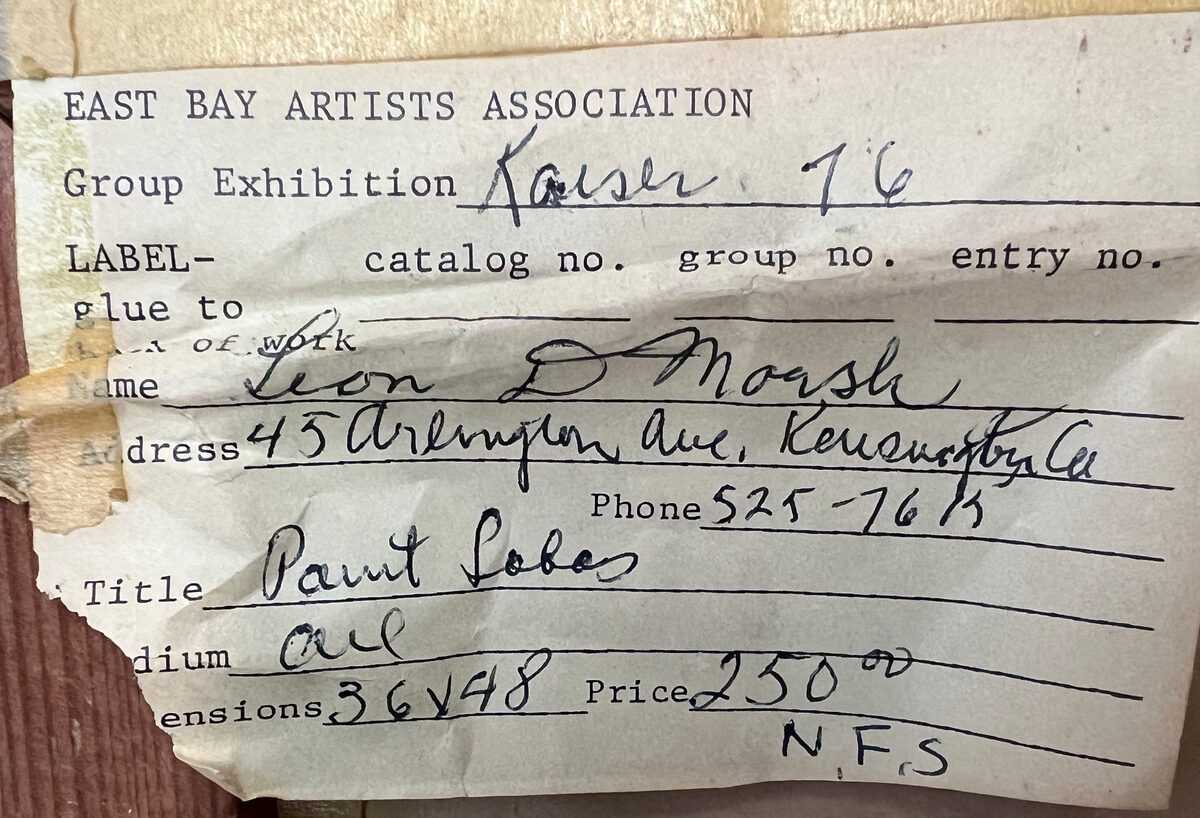 EAST BAY ARTISTS ASSOCIATION
Group Exhibition Kaiser 76
LABEL- catalog no. group no. entry no.
glue to
of work
Name Leon D
Address 45 Arlington Ave, Kensington Ca
Phone
Title Point Lobos
dium oil
ensions 36x48 Price 250 00
N.F.S